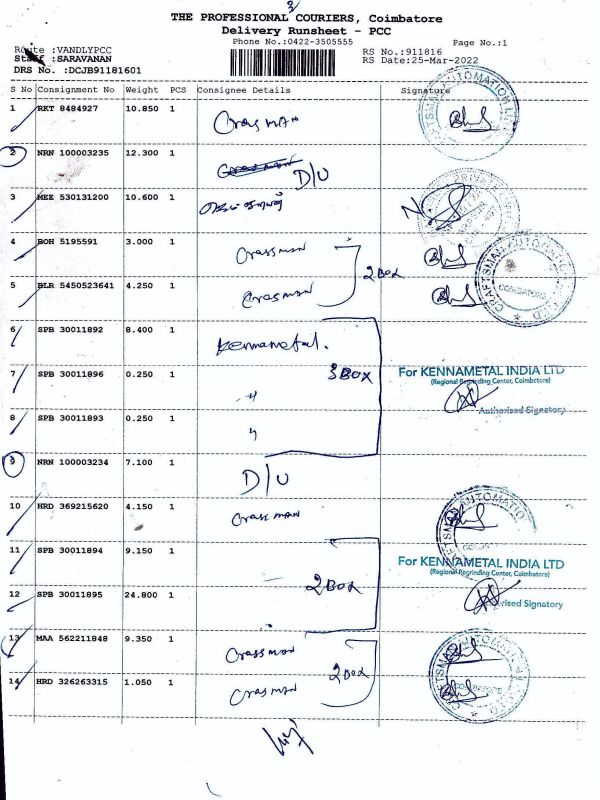 THE PROFESSIONAL COURIERS, Coimbatore
Delivery Runsheet - PCC
Phone No.:0422-3505555
Page No.:1
Route :VANDLYPCC
RS No.:911816
Staff :SARAVANAN
RS Date:25-Mar-2022
DRS No. :DCJB91181601
S No Consignment No Weight PCS Consignee Details Signature
1 RKT 8484927 10.850 1
CRAFTSMAN AUTOMATION
2 NRN 100003235 12.300 1 D/U
3 MEE 530131200 10.600 1
4 BOH 5195591 3.000 1 Crassman
2 Box
CRAFTSMAN AUTOMATION
COIMBATORE
5 BLR 5450523641 4.250 1 Crasman
6 SPB 30011892 8.400 1 Kennametal.
7 SPB 30011896 0.250 1 〃 3 Box
For KENNAMETAL INDIA LTD
(Regional Regrinding Center, Coimbatore)
Authorised Signatory
8 SPB 30011893 0.250 1 〃
9 NRN 100003234 7.100 1 D/U
10 HRD 369215620 4.150 1 Crassman
CRAFTSMAN AUTOMATION
11 SPB 30011894 9.150 1
2 Box
For KENNAMETAL INDIA LTD
(Regional Regrinding Center, Coimbatore)
12 SPB 30011895 24.800 1
Signatory
13 MAA 562211848 9.350 1 Crassman
2 Box
CRAFTSMAN AUTOMATION
14 HRD 326263315 1.050 1 Crasman